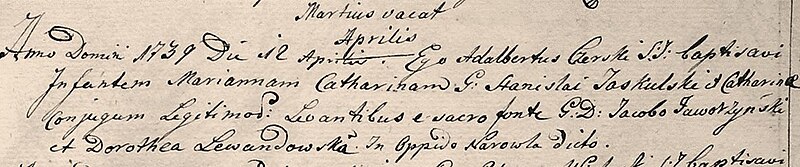 Martius vacat
Aprilis
Anno Domini 1739 Die 12 Aprilis. Ego Adalbertus Czerski S.J: baptisavi
Infantem Mariannam Catharinam G: Stanislai Jaskulski & Catharinæ
Conjugum Legitimor: Levantibus e sacro fonte G.D: Jacobo Jaworzynski
et Dorothea Lewandowska. In Oppido Narowla dicto.
baptisavi